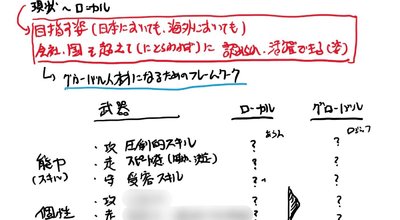 現状 〜 ローカル
目指す姿 (日本においても、海外においても)
会社、国を超えて(にとらわれず)に 認められ、活躍できる(姿)
グローバル人材になるためのフレームワーク
武器 ローカル グローバル
能力 (スキル)
・攻 圧倒的スキル ? ?
・走 ? ?
・守 受容スキル ? ?
個性 ・攻 ? ?
・走 ? ?